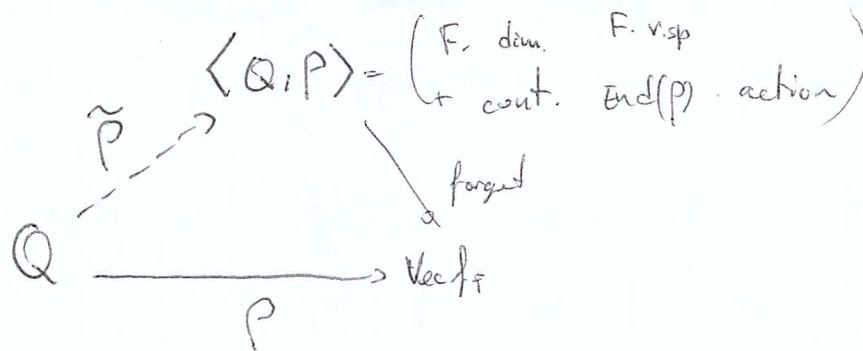 ⟨Q, ρ⟩ = ( F. dim. F. v.sp
+ cont. End(ρ) action )
ρ̃
forget
Q
Vect_F
ρ